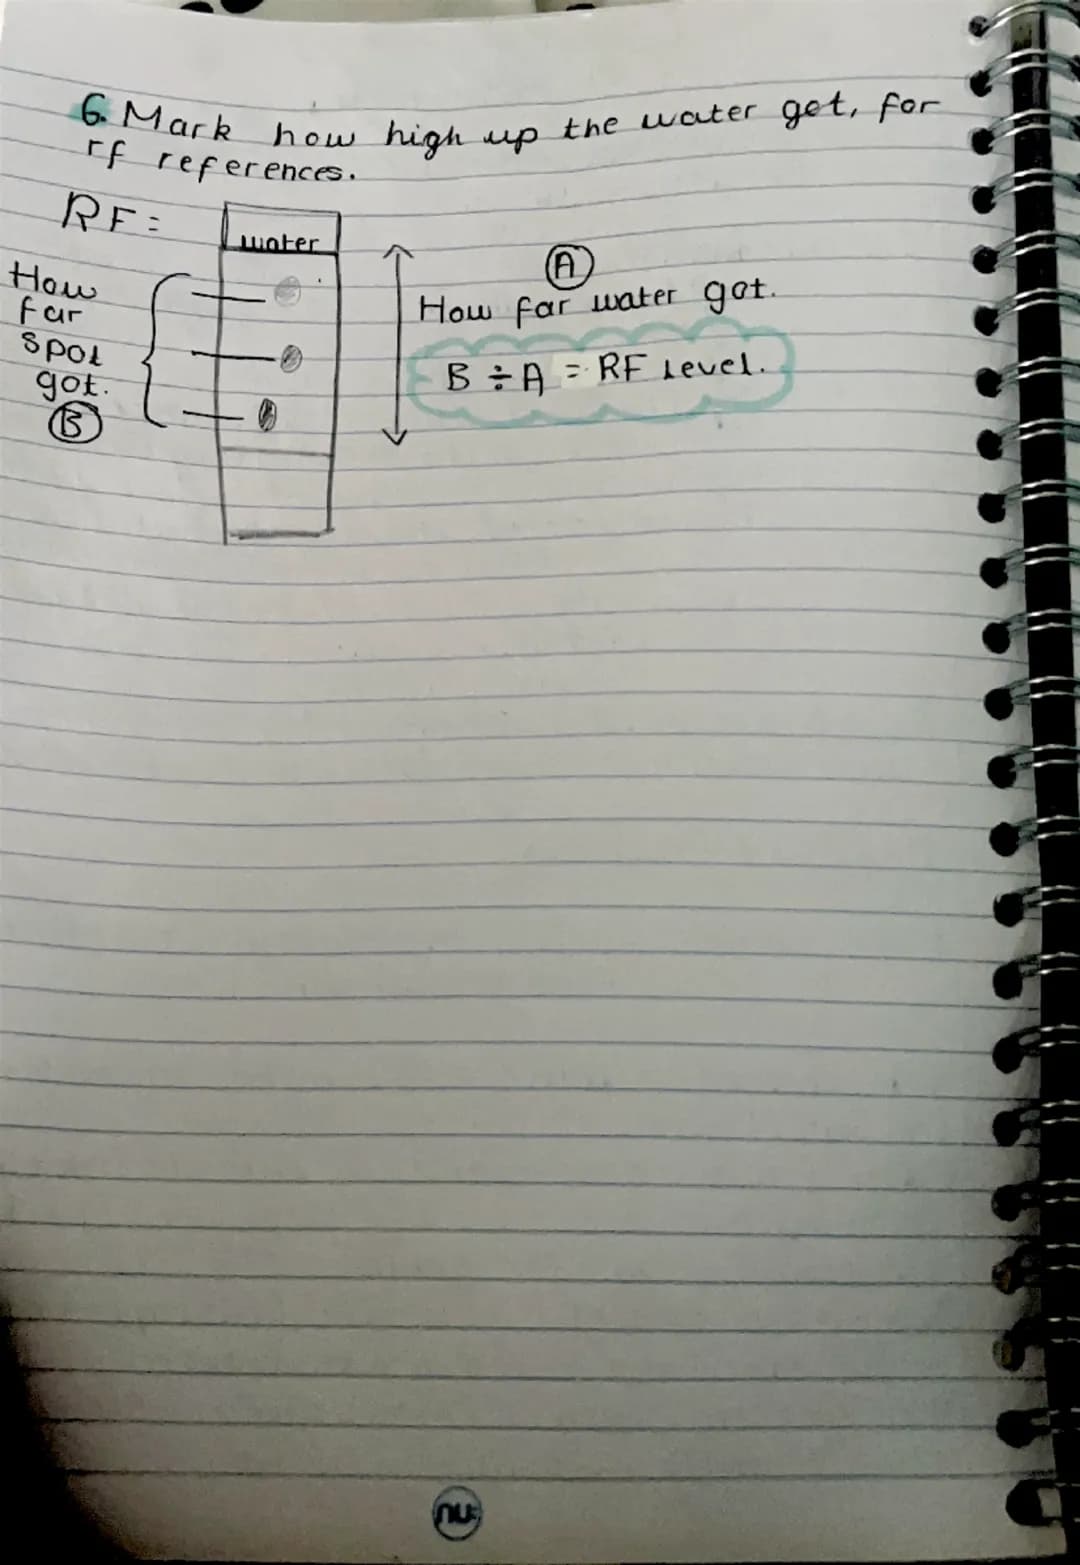 6. Mark how high up the water get, for
rf references.
RF=
water
How
far
spot
got.
B
A
How far water got.
B ÷ A = RF Level.
nu: